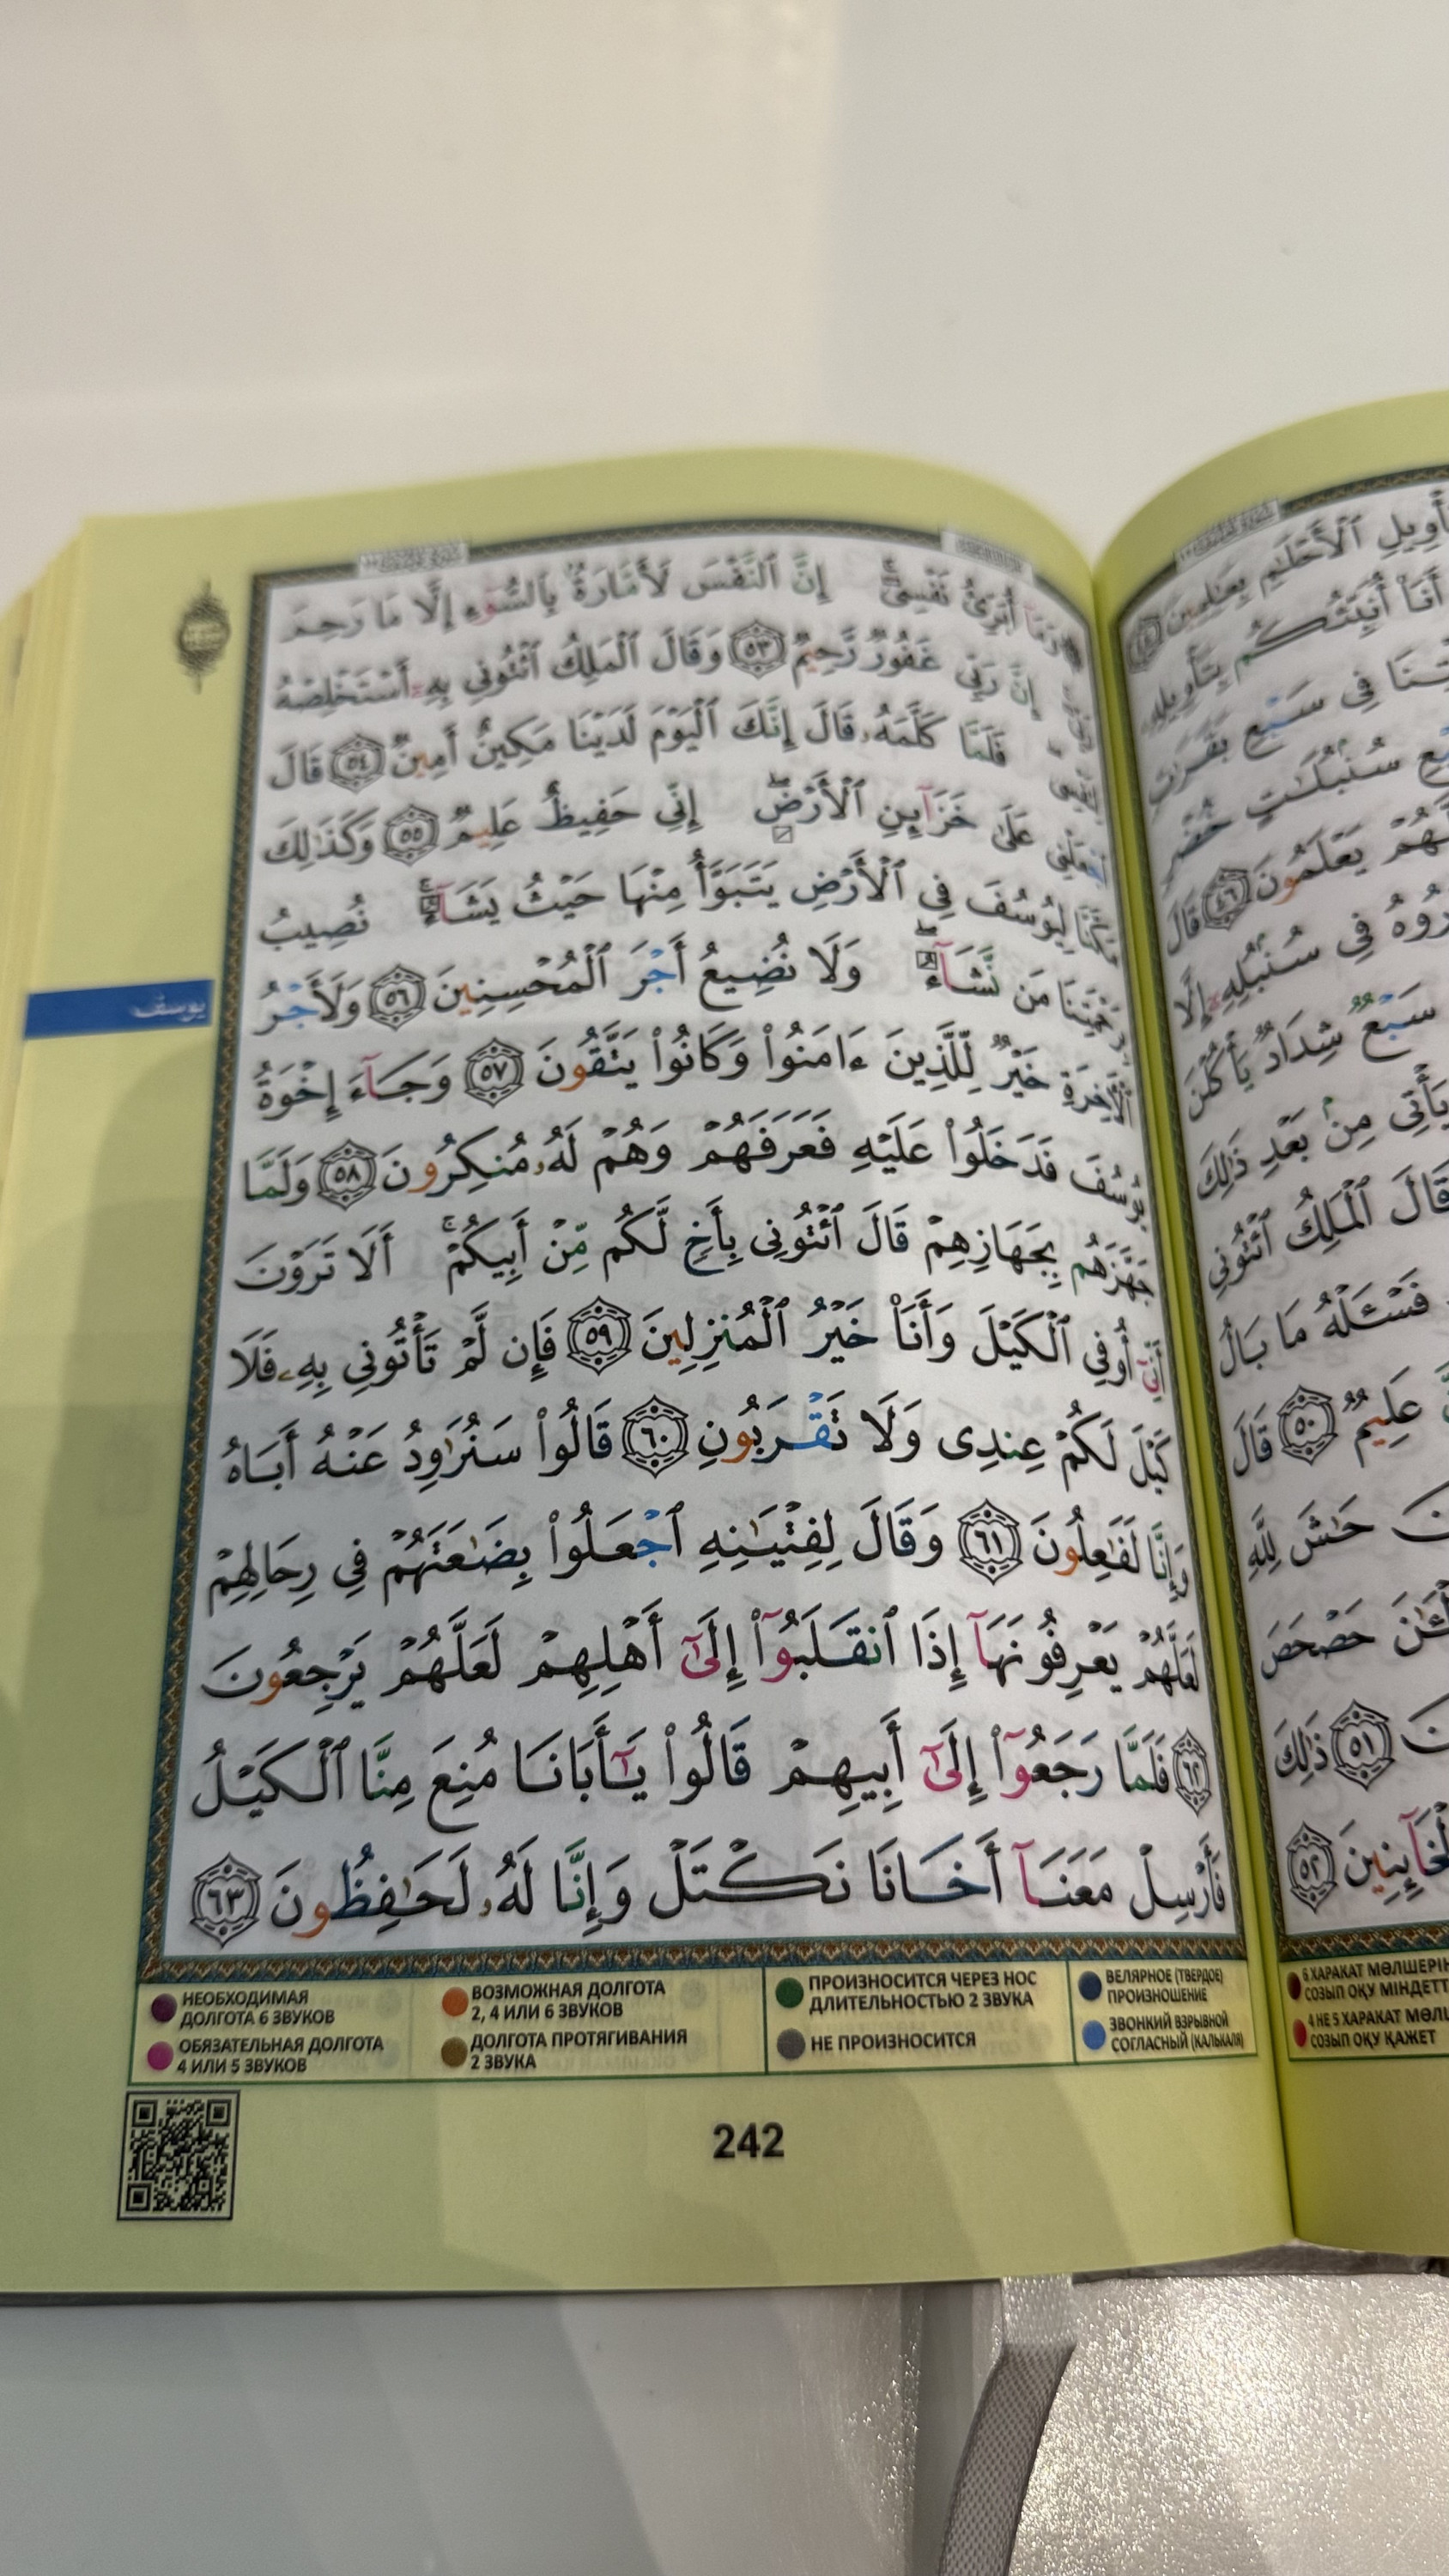 وَمَآ أُبَرِّئُ نَفْسِىٓ ۚ إِنَّ ٱلنَّفْسَ لَأَمَّارَةٌۢ بِٱلسُّوٓءِ إِلَّا مَا رَحِمَ
إِنَّ رَبِّى غَفُورٌ رَّحِيمٌ ٥٣ وَقَالَ ٱلْمَلِكُ ٱئْتُونِى بِهِۦٓ أَسْتَخْلِصْهُ
فَلَمَّا كَلَّمَهُۥ قَالَ إِنَّكَ ٱلْيَوْمَ لَدَيْنَا مَكِينٌ أَمِينٌ ٥٤ قَالَ
ٱجْعَلْنِى عَلَىٰ خَزَآئِنِ ٱلْأَرْضِ ۖ إِنِّى حَفِيظٌ عَلِيمٌ ٥٥ وَكَذَٰلِكَ
مَكَّنَّا لِيُوسُفَ فِى ٱلْأَرْضِ يَتَبَوَّأُ مِنْهَا حَيْثُ يَشَآءُ ۚ نُصِيبُ
بِرَحْمَتِنَا مَن نَّشَآءُ ۖ وَلَا نُضِيعُ أَجْرَ ٱلْمُحْسِنِينَ ٥٦ وَلَأَجْرُ
ٱلْأَخِرَةِ خَيْرٌ لِّلَّذِينَ ءَامَنُوا۟ وَكَانُوا۟ يَتَّقُونَ ٥٧ وَجَآءَ إِخْوَةُ
يُوسُفَ فَدَخَلُوا۟ عَلَيْهِ فَعَرَفَهُمْ وَهُمْ لَهُۥ مُنكِرُونَ ٥٨ وَلَمَّا
جَهَّزَهُم بِجَهَازِهِمْ قَالَ ٱئْتُونِى بِأَخٍ لَّكُم مِّنْ أَبِيكُمْ ۚ أَلَا تَرَوْنَ
أَنِّىٓ أُوفِى ٱلْكَيْلَ وَأَنَا۠ خَيْرُ ٱلْمُنزِلِينَ ٥٩ فَإِن لَّمْ تَأْتُونِى بِهِۦ فَلَا
كَيْلَ لَكُمْ عِندِى وَلَا تَقْرَبُونِ ٦٠ قَالُوا۟ سَنُرَٰوِدُ عَنْهُ أَبَاهُ
وَإِنَّا لَفَٰعِلُونَ ٦١ وَقَالَ لِفِتْيَٰنِهِ ٱجْعَلُوا۟ بِضَٰعَتَهُمْ فِى رِحَالِهِمْ
لَعَلَّهُمْ يَعْرِفُونَهَآ إِذَا ٱنقَلَبُوٓا۟ إِلَىٰٓ أَهْلِهِمْ لَعَلَّهُمْ يَرْجِعُونَ
٦٢ فَلَمَّا رَجَعُوٓا۟ إِلَىٰٓ أَبِيهِمْ قَالُوا۟ يَٰٓأَبَانَا مُنِعَ مِنَّا ٱلْكَيْلُ
فَأَرْسِلْ مَعَنَآ أَخَانَا نَكْتَلْ وَإِنَّا لَهُۥ لَحَٰفِظُونَ ٦٣
يوسف
НЕОБХОДИМАЯ ДОЛГОТА 6 ЗВУКОВ
ОБЯЗАТЕЛЬНАЯ ДОЛГОТА 4 ИЛИ 5 ЗВУКОВ
ВОЗМОЖНАЯ ДОЛГОТА 2, 4 ИЛИ 6 ЗВУКОВ
ДОЛГОТА ПРОТЯГИВАНИЯ 2 ЗВУКА
ПРОИЗНОСИТСЯ ЧЕРЕЗ НОС ДЛИТЕЛЬНОСТЬЮ 2 ЗВУКА
НЕ ПРОИЗНОСИТСЯ
ВЕЛЯРНОЕ (ТВЕРДОЕ) ПРОИЗНОШЕНИЕ
ЗВОНКИЙ ВЗРЫВНОЙ СОГЛАСНЫЙ (КАЛЬКАЛЯ)
242
ٱلْأَحْلَٰمِ بِعَٰلِمِينَ
أَنَا۠ أُنَبِّئُكُم بِتَأْوِيلِهِۦ
فِى سَبْعِ بَقَرَٰتٍ
سُنۢبُلَٰتٍ خُضْرٍ
يَعْلَمُونَ ٤٦ قَالَ
فِى سُنۢبُلِهِۦٓ إِلَّا
سَبْعٌ شِدَادٌ يَأْكُلْنَ
يَأْتِى مِنۢ بَعْدِ ذَٰلِكَ
قَالَ ٱلْمَلِكُ ٱئْتُونِى
فَسْـَٔلْهُ مَا بَالُ
عَلِيمٌ ٥٠ قَالَ
حَٰشَ لِلَّهِ
حَصْحَصَ
٥١ ذَٰلِكَ
ٱلْخَآئِنِينَ ٥٢
6 ХАРАКАТ
СОЗЫП ОҚУ
4 НЕ 5 ХАРАКАТ
СОЗЫП ОҚУ ҚАЖЕТ